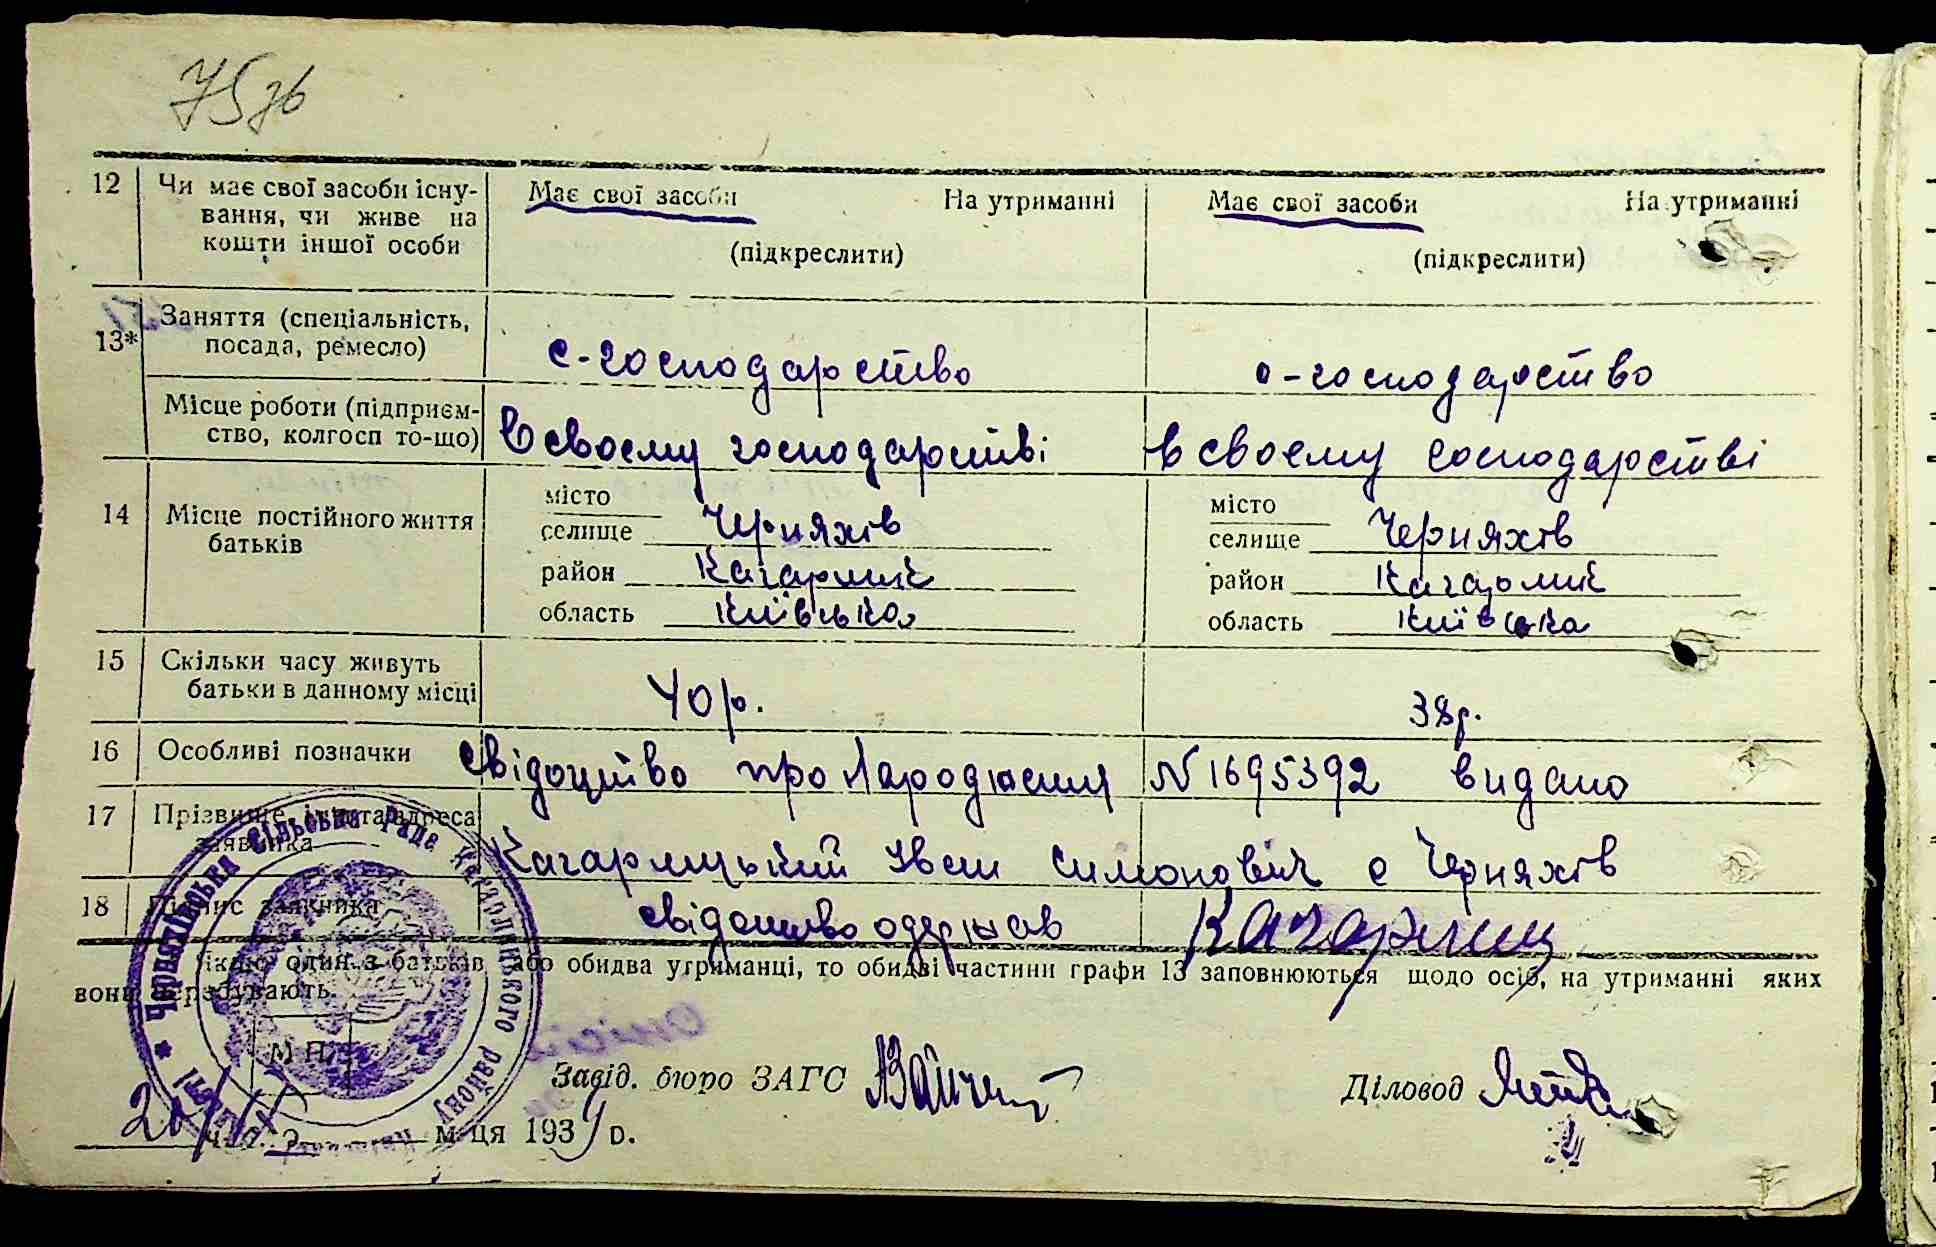 75зв
12 Чи має свої засоби існу- Має свої засоби На утриманні Має свої засоби На утриманні
вання, чи живе на
кошти іншої особи (підкреслити) (підкреслити)
13* Заняття (спеціальність, с-господарство с-господарство
посада, ремесло)
Місце роботи (підприєм- В своєму господарстві в своєму господарстві
ство, колгосп то-що)
14 Місце постійного життя місто місто
батьків селище Черняхів селище Черняхів
район Кагарлик район Кагарлик
область Київська область Київська
15 Скільки часу живуть 40 р. 38 р.
батьки в данному місці
16 Особливі позначки свідоцтво про народження N 1695392 видано
17 Прізвище, ім'я та адреса
заявника Кагарлицький Іван Симонович с Черняхів
18 Підпис заявника свідоцтво одержав Кагарлиц
Якщо один з батьків або обидва утриманці, то обидві частини графи 13 заповнюються щодо осіб, на утриманні яких
вони перебувають.
Черняхівська сільська Рада Кагарлицького району
М П.
Завід. бюро ЗАГС Діловод
20/ м-ця 1939 р.